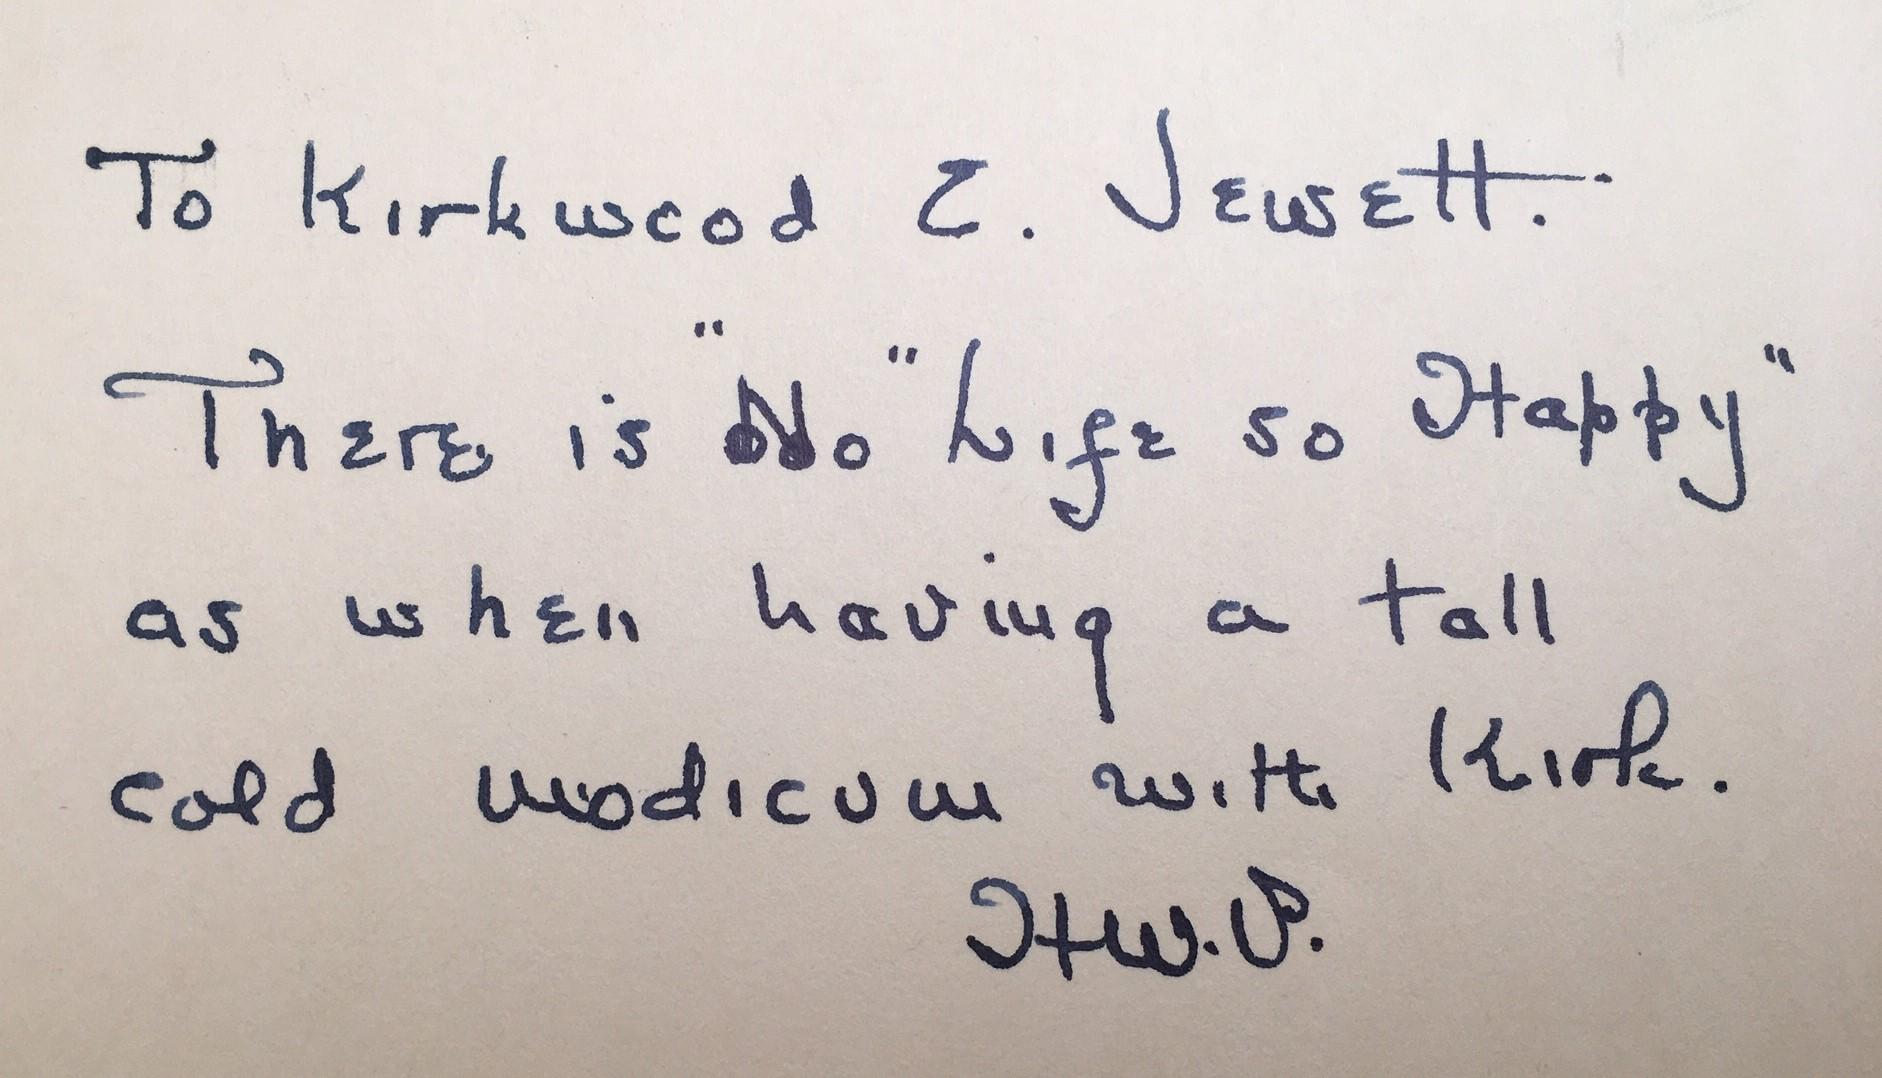 To Kirkwood E. Jewett.
There is "No" Life so Happy"
as when having a tall
cold modicum with Kirk.
H.W.P.